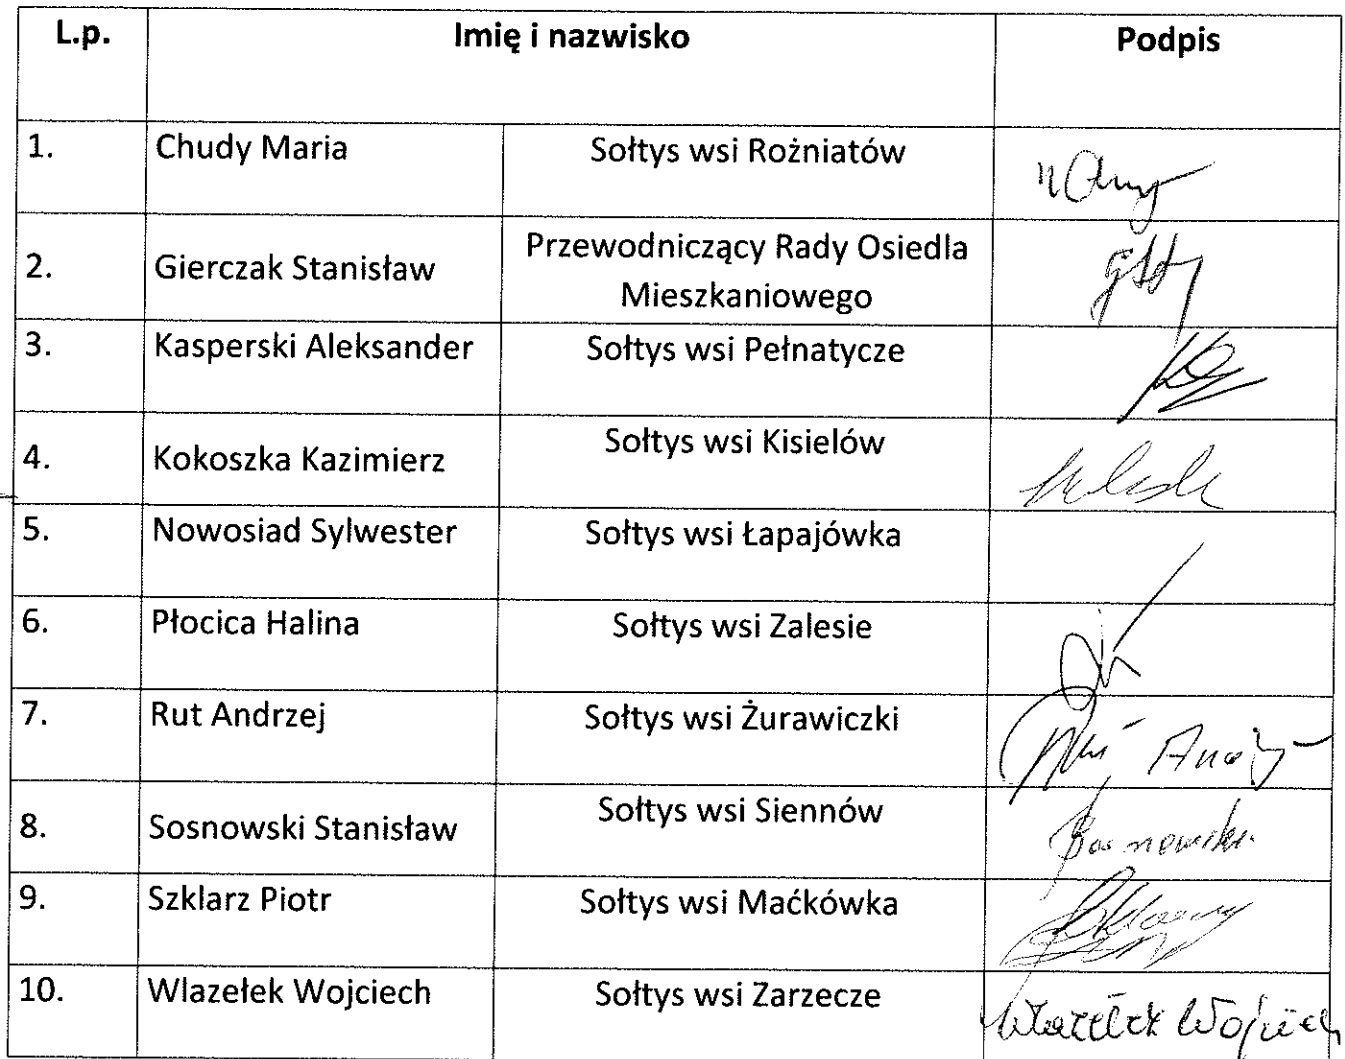 L.p. Imię i nazwisko Podpis
1. Chudy Maria Sołtys wsi Rożniatów
2. Gierczak Stanisław Przewodniczący Rady Osiedla
Mieszkaniowego
3. Kasperski Aleksander Sołtys wsi Pełnatycze
4. Kokoszka Kazimierz Sołtys wsi Kisielów
5. Nowosiad Sylwester Sołtys wsi Łapajówka
6. Płocica Halina Sołtys wsi Zalesie
7. Rut Andrzej Sołtys wsi Żurawiczki
8. Sosnowski Stanisław Sołtys wsi Siennów
9. Szklarz Piotr Sołtys wsi Maćkówka
10. Wlazełek Wojciech Sołtys wsi Zarzecze Wlazełek Wojciech